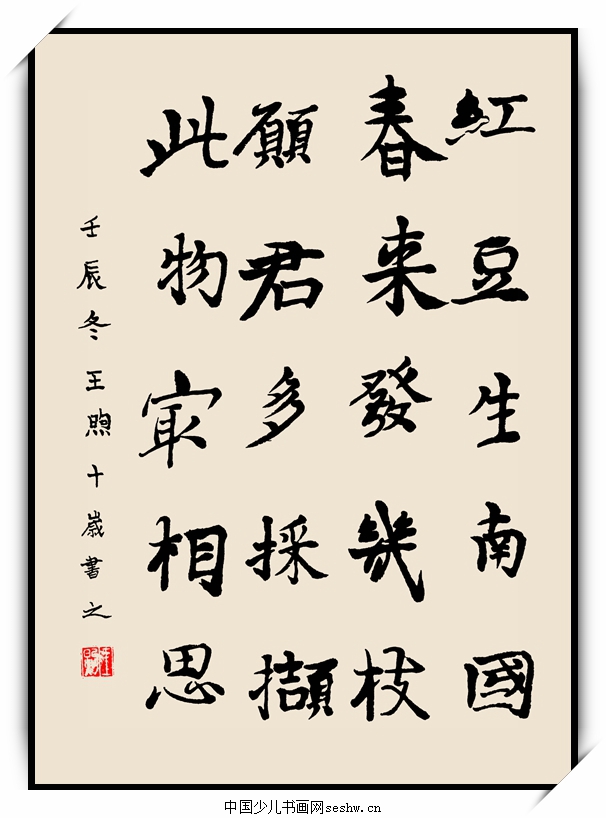 紅豆生南國
春来發幾枝
願君多採擷
此物冣相思
壬辰冬王煦十歲書之
中国少儿书画网seshw.cn